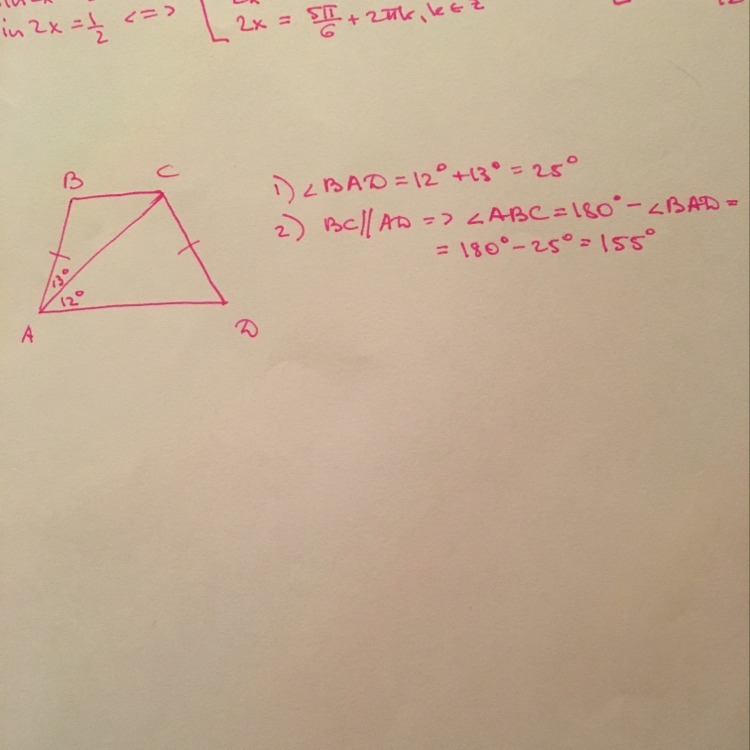 in 2x = 1/2 <=> [ 2x = 5π/6 + 2πk, k ∈ Z
B C
13°
12°
A D
1) ∠BAD = 12° + 13° = 25°
2) BC || AD => ∠ABC = 180° - ∠BAD =
= 180° - 25° = 155°